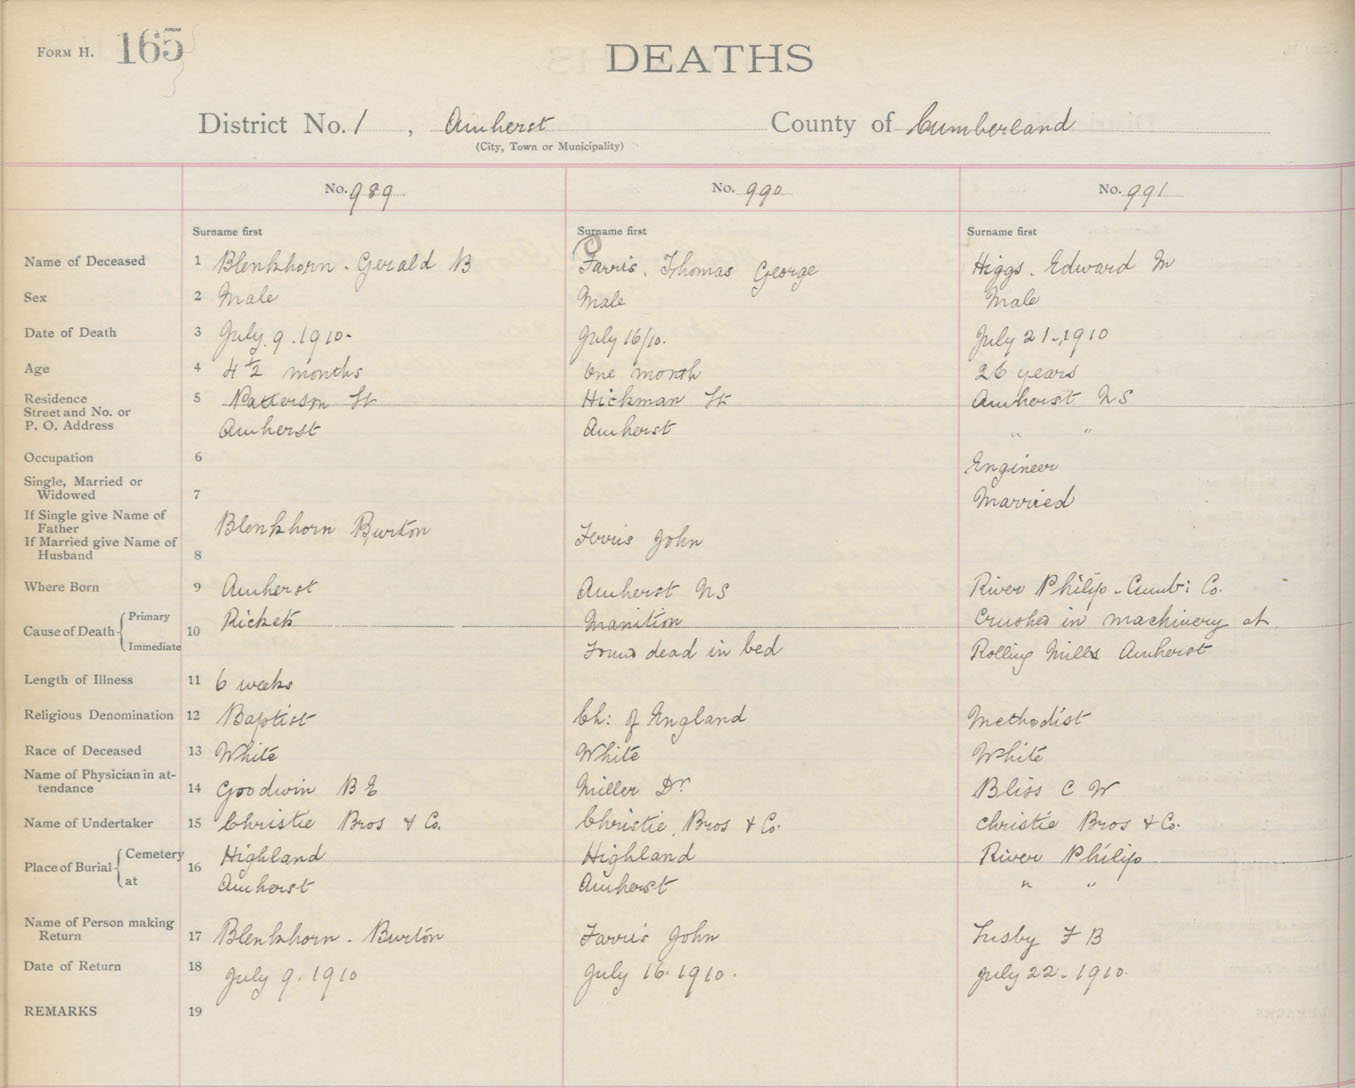 FORM H. 165
DEATHS
District No. 1, Amherst County of Cumberland
(City, Town or Municipality)
No. 989 No. 990 No. 991
Surname first Surname first Surname first
Name of Deceased 1 Blenkhorn. Gerald B Farris, Thomas George Higgs. Edward M
Sex 2 Male Male Male
Date of Death 3 July 9. 1910- July 16/10. July 21-, 1910
Age 4 4 1/2 months One month 26 years
Residence 5 Patterson St Hickman St Amherst NS
Street and No. or
P. O. Address Amherst Amherst " "
Occupation 6 Engineer
Single, Married or
Widowed 7 Married
If Single give Name of
Father Blenkhorn Burton Ferris John
If Married give Name of
Husband 8
Where Born 9 Amherst Amherst NS River Philip - Cumb: Co.
Cause of Death Primary 10 Rickets Inanition Crushed in machinery at
Immediate Found dead in bed Rolling Mills Amherst
Length of Illness 11 6 weeks
Religious Denomination 12 Baptist Ch: of England Methodist
Race of Deceased 13 White White White
Name of Physician in at-
tendance 14 Goodwin B E Miller Dr Bliss C W
Name of Undertaker 15 Christie Bros & Co. Christie Bros & Co. Christie Bros & Co.
Place of Burial Cemetery 16 Highland Highland River Philip
at Amherst Amherst " "
Name of Person making
Return 17 Blenkhorn. Burton Farris John Lusby F B
Date of Return 18 July 9. 1910 July 16. 1910. July 22 - 1910.
REMARKS 19